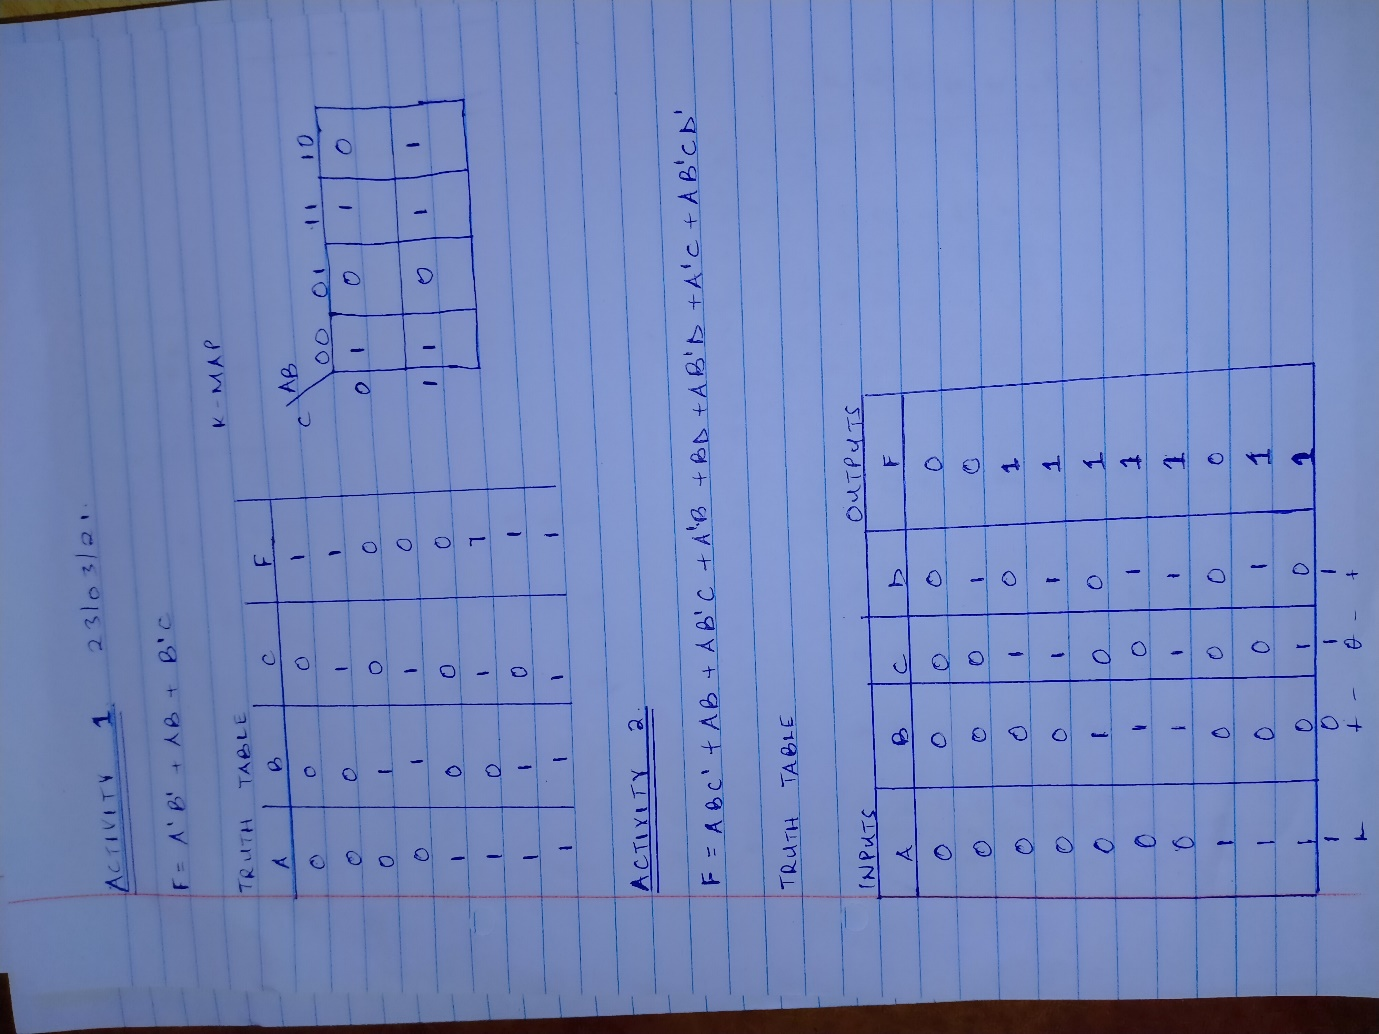 ACTIVITY 1 23/03/21.
F = A'B' + AB + B'C
TRUTH TABLE K-MAP
A B C F
0 0 0 1
0 0 1 1
0 1 0 0
0 1 1 0
1 0 0 0
1 0 1 1
1 1 0 1
1 1 1 1
C AB
00 01 11 10
0 1 0 1 0
1 1 0 1 1
ACTIVITY 2.
F = ABC' + AB + AB'C + A'B + BD + AB'D + A'C + AB'CD'
TRUTH TABLE
INPUTS OUTPUTS
A B C D F
0 0 0 0 0
0 0 0 1 0
0 0 1 0 1
0 0 1 1 1
0 1 0 0 1
0 1 0 1 1
0 1 1 1 1
1 0 0 0 0
1 0 0 1 1
1 0 1 0 1
1 0 1 1